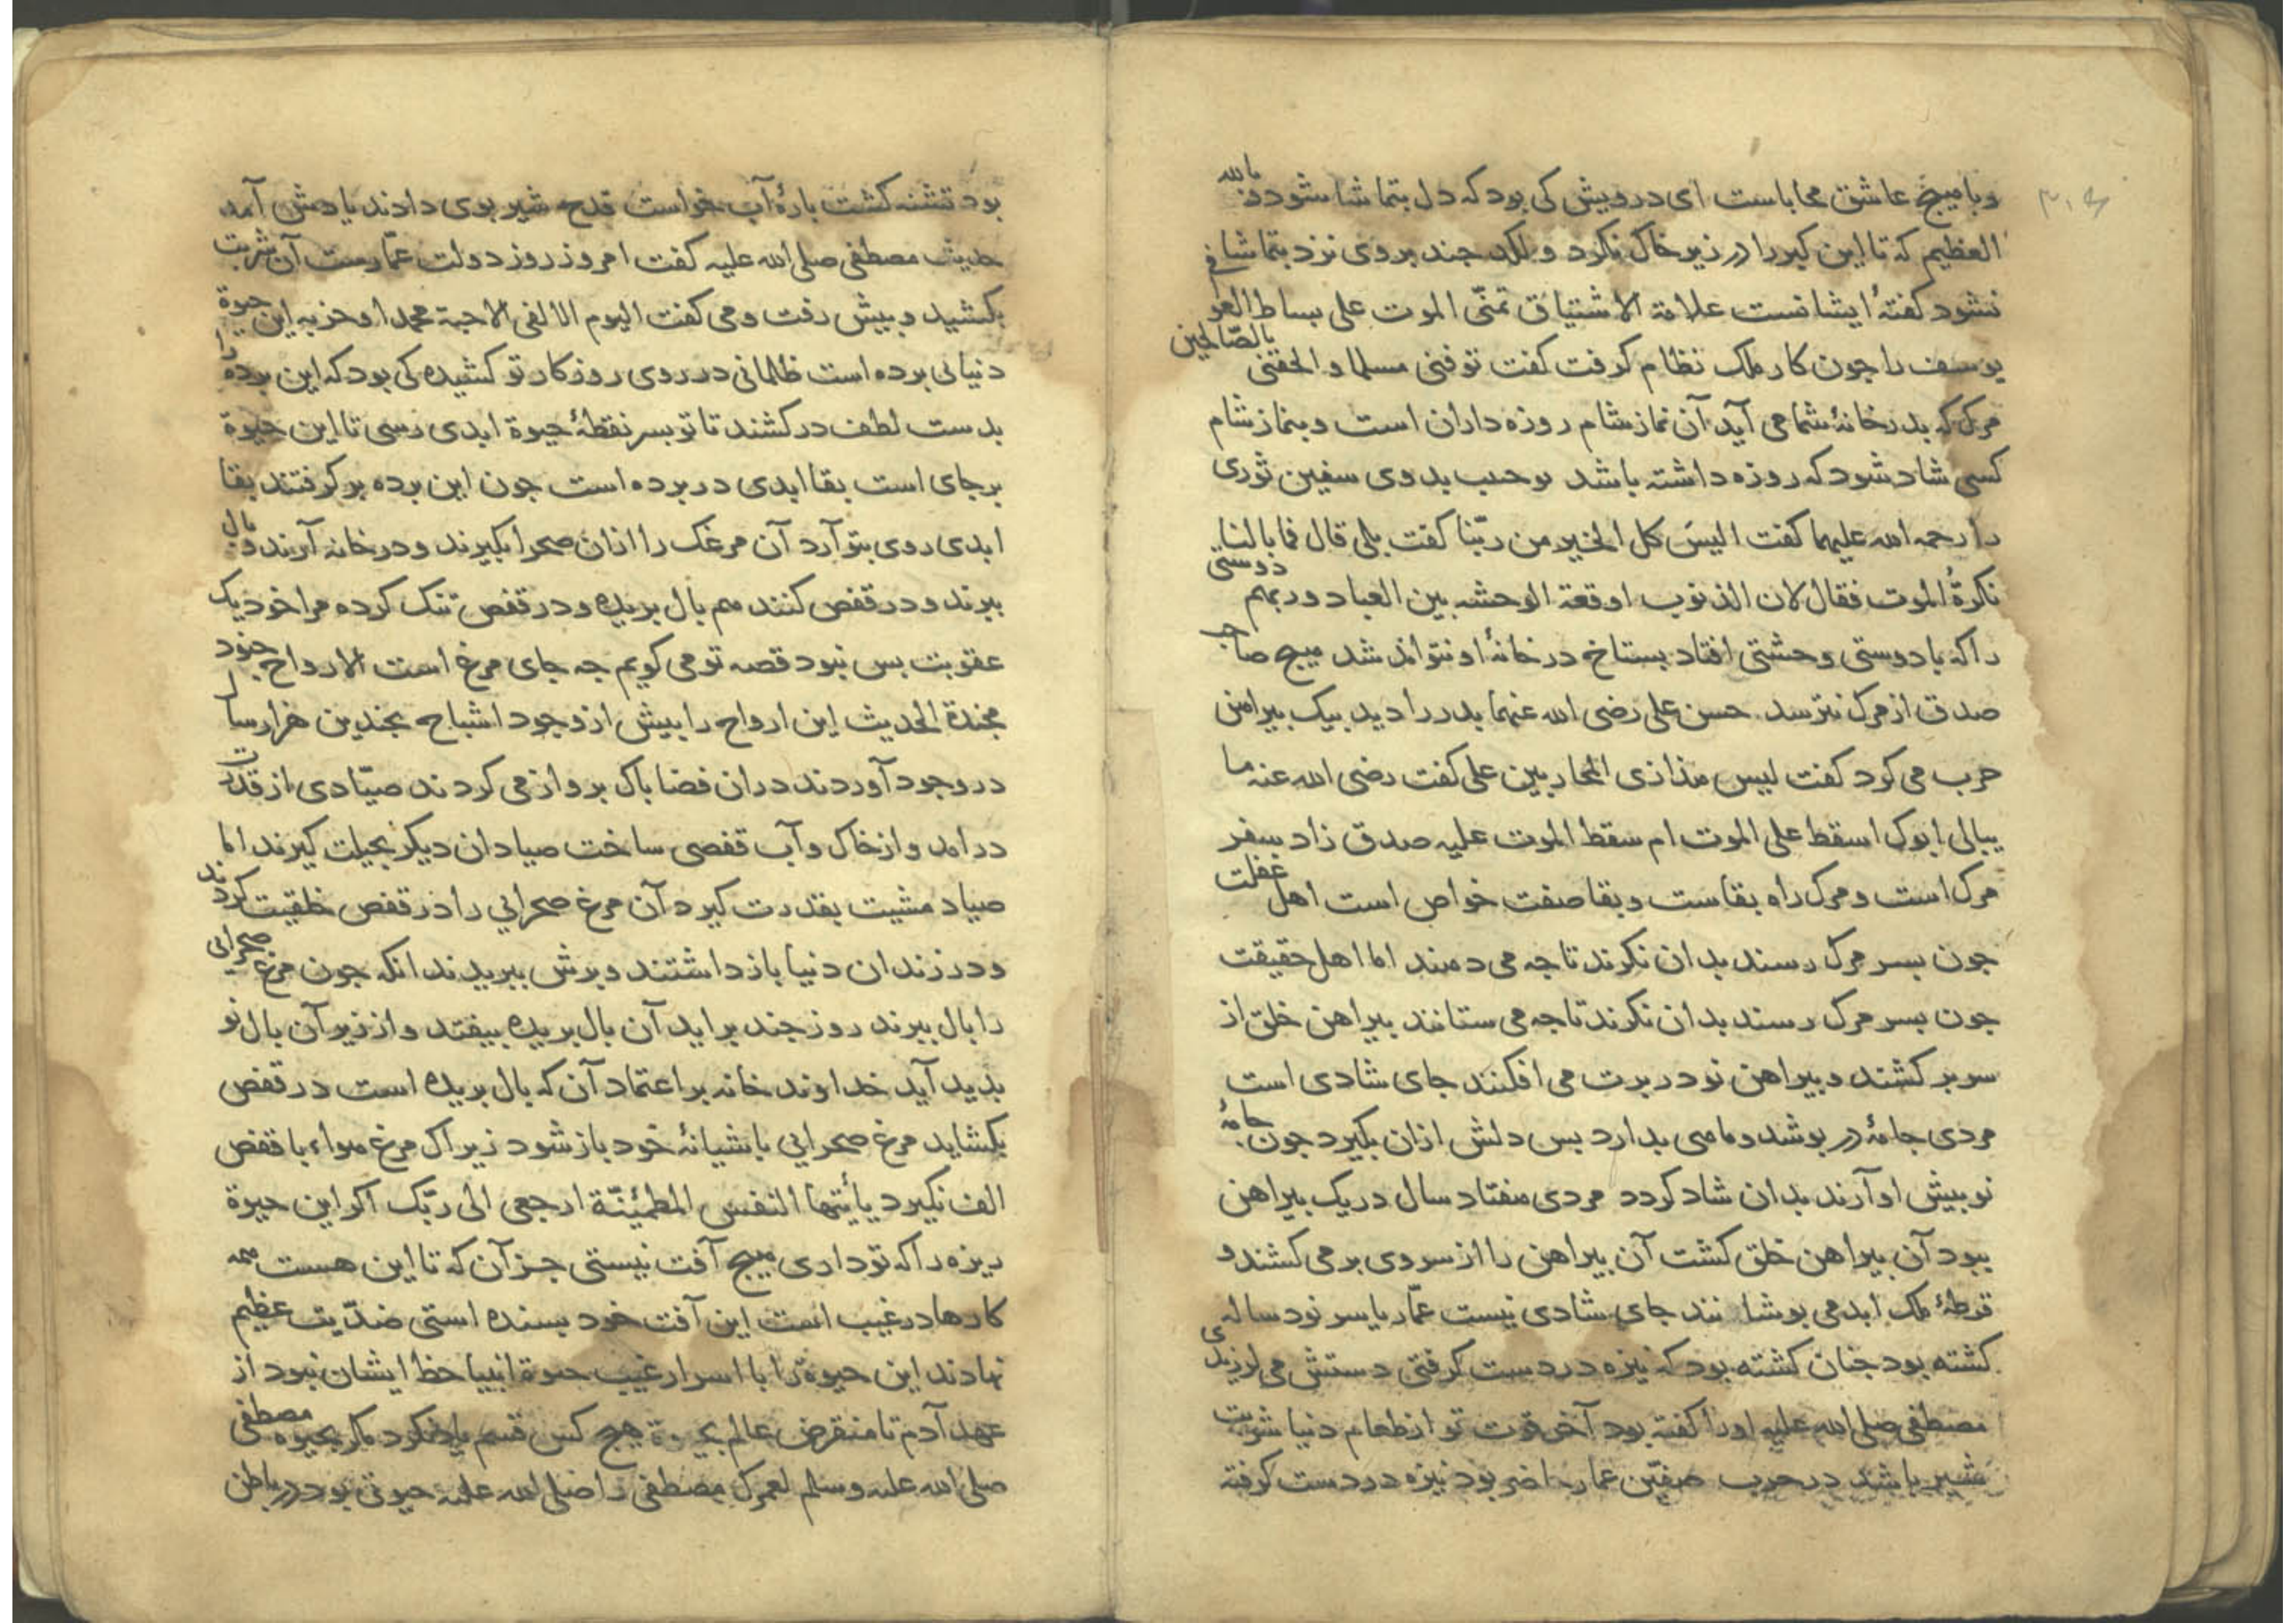 ۳۰۶
وبا میچ عاشق محاباست ای درویش کی بود که دل بتماشا شود و بالله
العظیم که تا این کبر را در زیر خاک نکرد و لکد جند بروی نزد بتماشا
نشود کفتۀ ایشانست علامة الاشتیاق تمنّی الموت علی بساط العز
یوسف را جون کار ملک نظام کرفت کفت توفنی مسلما و الحقنی بالصّالحین
مرک که بدر خانۀ شما می آید آن نماز شام روزه داران است و بنماز شام
کسی شاد شود که روزه داشته باشد بدوی سفین ثوری
را رحمه الله علیهما کفت الیسَ کل الخیر من ربّنا کفت بلی قال فما بالنا
نکرهُ الموت فقال لان الذنوب اوقعة الوحشه بین العباد و ربهم دوستی
را که با دوستی وحشتی افتاد بستاخ در خانۀ او نتواند شد میچ صاحب
صدق از مرک نترسد حسن علی رضی الله عنهما بدر را دید بیک بیرامن
حرب می کرد کفت لیس مذا زی المحاربین علی کفت رضی الله عنه ما
یبالی ابوک اسقط علی الموت ام سقط الموت علیه صدق زاد سفر
مرک است و مرک راه بقاست و بقا صفت خواص است اهل غفلت
جون بسر مرک رسند بدان نکرند تا جه می دمند اما اهل حقیقت
جون بسر مرک رسند بدان نکرند تا جه می ستانند بیراهن خلق از
سر بر کشند و بیراهن نو در برت می افکنند جای شادی است
مردی جامۀ در بوشد و مامی بدارد بس دلش ازان بکیرد جون جامۀ
نو بیش او آرند بدان شاد کردد مردی مفتاد سال در یک بیراهن
ببود آن بیراهن خلق کشت آن بیراهن را از سر وی بر می کشند و
قرطۀ ملک ابد می بوشانند جای شادی نیست عمّار یاسر نود ساله
کشته بود جنان کشته بود که نیزه در دست کرفتی دستش می لرزیدی
مصطفی صلی الله علیه او را کفته بود آخر قوت تو از طعام دنیا شربت
شیر باشد در حرب صفّین عمار حاضر بود نیزه در دست کرفته
بود تشنه کشت بارۀ آب خواست قدح شیر بوی دادند یادش آمد
حدیث مصطفی صلی الله علیه کفت امروز روز دولت عمّارست آن شربت
بکشید و بیش رفت و می کفت الیوم الالقی الاحبة محمدا و حزبه این حیوة
دنیائی برده است ظلمانی در روی روزکار تو کشیده کی بود که این برده را
بدست لطف در کشند تا تو بسر نقطۀ حیوة ابدی رسی تا این حیوة
برجای است بقا ابدی در برده است جون این برده بر کرفتند بقا
ابدی روی بتو آرد آن مرغک را ازان صحرا بکیرند و در خانه آرند و بال
ببرند و در قفص کنند مم بال بریده و در قفص تنک کرده مرا خود یک
عقوبت بس نبود قصه تو می کویم جه جای مرغ است الارواح جنود
مجندة الحدیث این ارواح را بیش از وجود اشباح بجندین هزار سال
در وجود آوردند دران فضا باک برواز می کردند صیّادی از قدرت
در امد و از خاک و آب قفصی ساخت صیادان دیکر بحیلت کیرند اما
صیاد مشیت بقدرت کیرد آن مرغ صحرایی را در قفص خلقیت کردند
و در زندان دنیا باز داشتند و برش ببریدند انکه جون مرغ صحرایی
را بال ببرند روز جند براید آن بال بریده بیفتد و از زیر آن بال نو
بدید آید خداوند خانه بر اعتماد آن که بال بریده است در قفص
بکشاید مرغ صحرایی باشیانۀ خود باز شود زیراک مرغ مواء با قفص
الف نکیرد یأیّتها النفس المطمئنّة ارجعی الی ربّک اکر این حیوة
ریزه را که تو داری میچ آفت نیستی جز آن که تا این هست ممه
کارها در غیب است این آفت خود بسنده استی ضدّیت عظیم
نهادند این حیوة را با اسرار غیب حیوة انبیا حظ ایشان نبود از
عهد آدم تا منقرض عالم هیچ کس قسم یاد نکرد مکر بحیوة مصطفی
صلی الله علیه وسلم لعمرک مصطفی را صلی الله علیه حیوتی بود در باطن